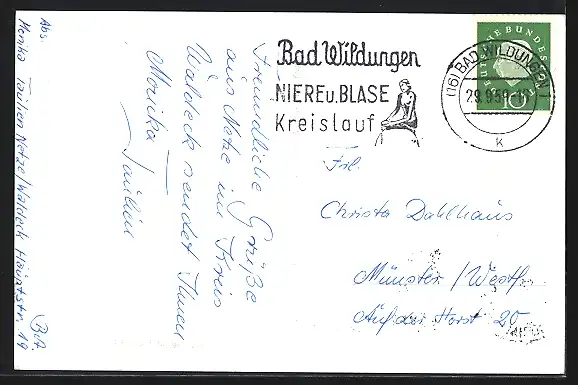 Abs.
Monika Taulien Netze/Waldeck Hauptstr. 19
Bad Wildungen
NIERE u. BLASE
Kreislauf
(16) BAD WILDUNGEN
29.9.59
k
DEUTSCHE BUNDESPOST
10
Freundliche Grüße
aus Netze im Kreis
Waldeck sendet Ihnen
Monika Taulien
Frl.
Christa Dahlhaus
Münster/Westf.
Auf der Horst 20